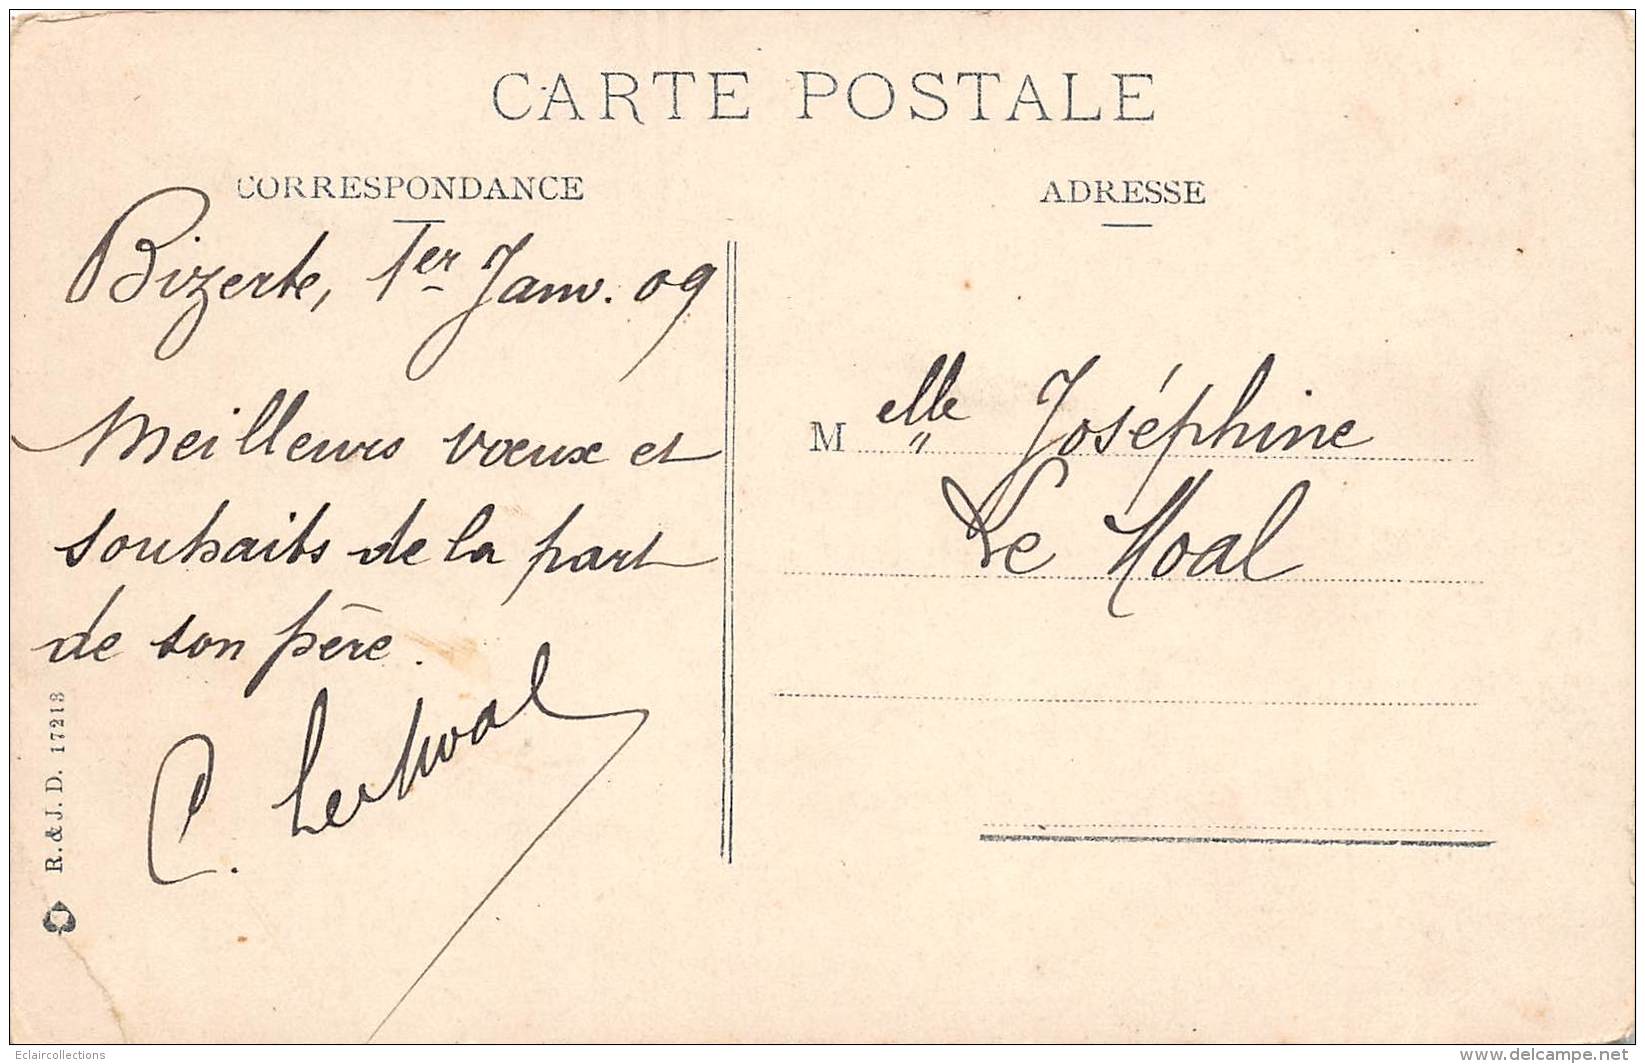 CARTE POSTALE
CORRESPONDANCE
Bizerte, 1er Janv. 09
Meilleurs vœux et
souhaits de la part
de son père.
C.
R. & J. D. 17213
ADRESSE
Melle Joséphine
Le Moal
Eclaircollections
www.delcampe.net